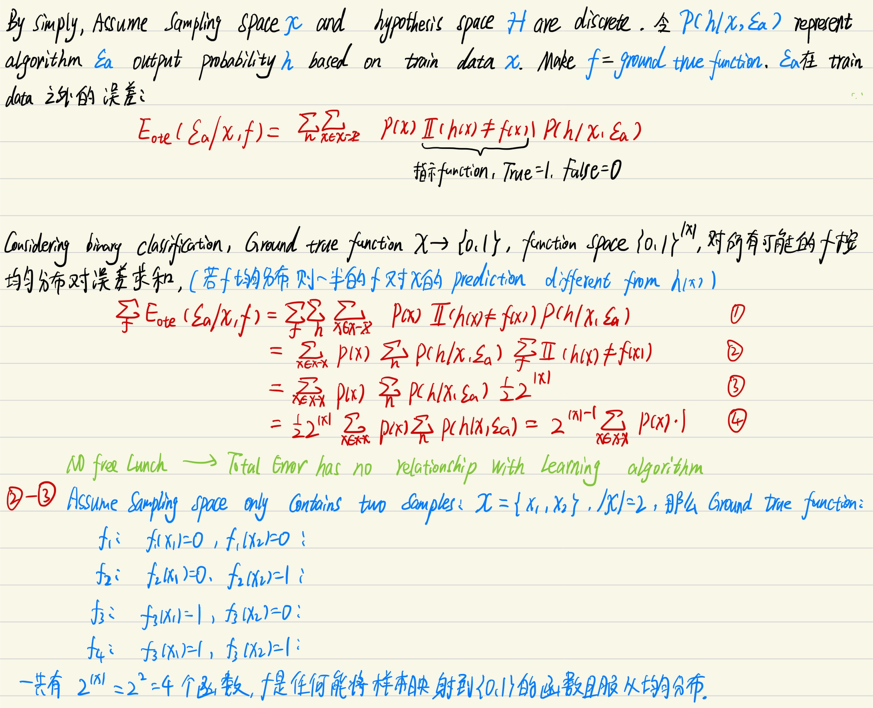 By simply, Assume Sampling space 𝒳 and hypothesis space H are discrete. 令 P(h|X, ξa) represent
algorithm ξa output probability h based on train data x. Make f = ground true function. ξa在 train
data 之外的误差:
Eote(ξa|X,f) = ΣhΣx∈𝒳-X P(x) 𝕀(h(x)≠f(x)) P(h|X, ξa)
指示function, True=1. False=0
Considering binary classification, Ground true function 𝒳→{0,1}, function space {0,1}^|𝒳|, 对所有可能的f按
均匀分布对误差求和, (若f均匀分布 则一半的f对x的 prediction different from h(x))
Σf Eote(ξa|X,f) = ΣfΣhΣx∈𝒳-X P(x) 𝕀(h(x)≠f(x)) P(h|X, ξa) ①
= Σx∈𝒳-X P(x) Σh P(h|X, ξa) Σf 𝕀(h(x)≠f(x)) ②
= Σx∈𝒳-X P(x) Σh P(h|X, ξa) ½2^|𝒳| ③
= ½2^|𝒳| Σx∈𝒳-X P(x) Σh P(h|X, ξa) = 2^(|𝒳|-1) Σx∈𝒳-X P(x)·1 ④
No free Lunch → Total Error has no relationship with Learning algorithm
②-③ Assume Sampling space only Contains two samples: 𝒳={x₁,x₂}, |𝒳|=2, 那么 Ground true function:
f₁: f₁(x₁)=0, f₁(x₂)=0;
f₂: f₂(x₁)=0, f₂(x₂)=1;
f₃: f₃(x₁)=1, f₃(x₂)=0;
f₄: f₃(x₁)=1, f₃(x₂)=1;
一共有 2^|𝒳| = 2² = 4 个函数, f是任何能将样本映射到{0,1}的函数且服从均匀分布.